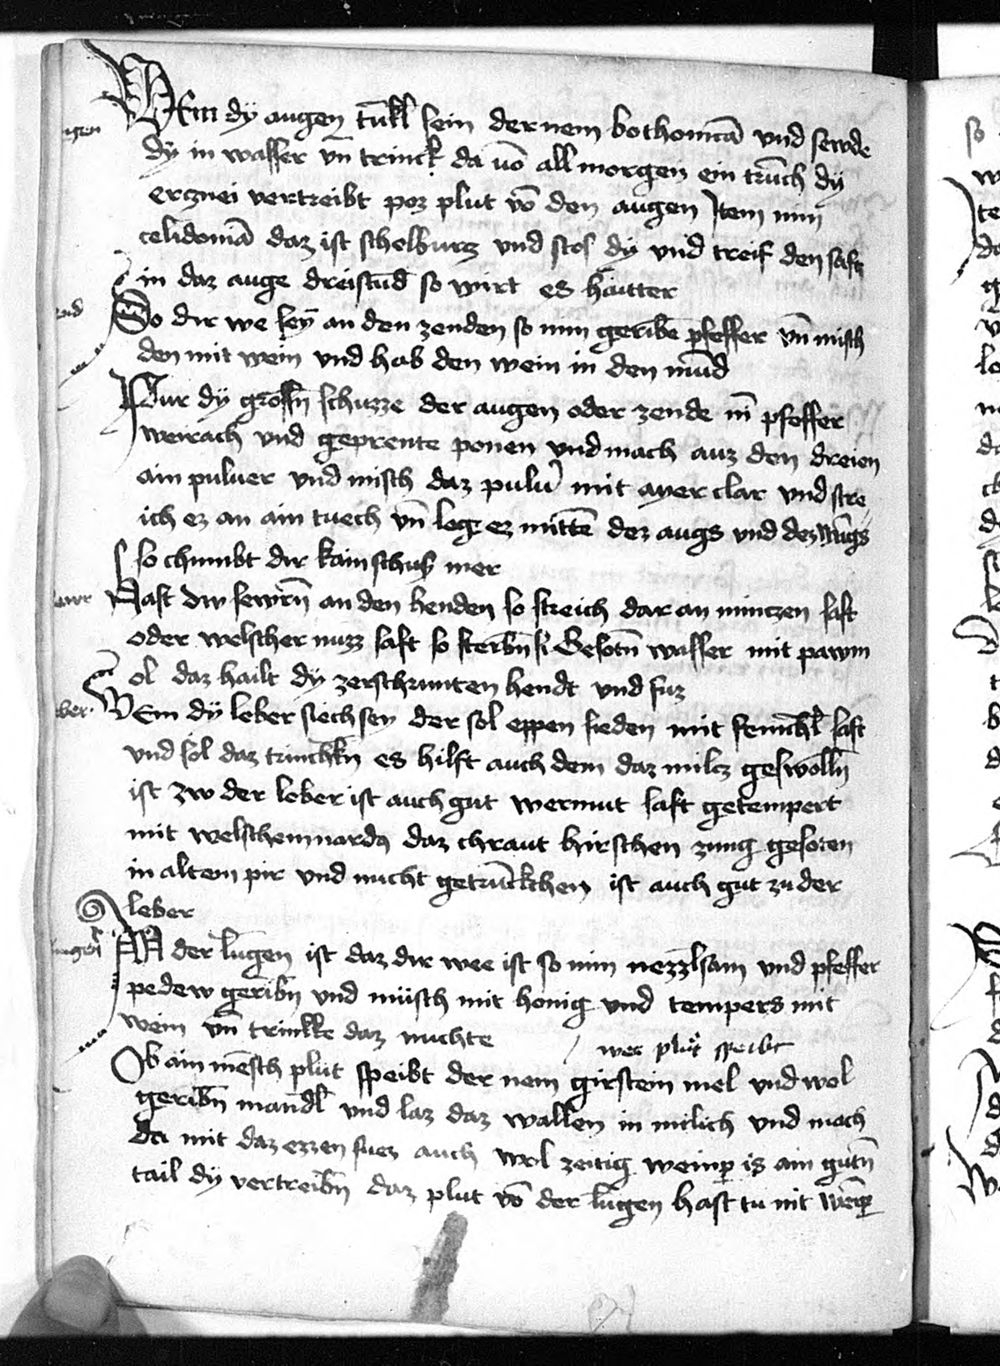 Wem dy augen tuͤkl sein der nem bethonicā und sewde
dy in wasser vn̄ trinck da vō all morgen ein trūch dy
ercznei vertreibt poz plut vō den augen Item nim
celidoniā daz ist schelburcz und stos dy und treif den saft
in daz auge dreistūd so wirt es haͤitter
So dir we seÿ an den zenden so nim geribē pfeffer vn̄ misch
den mit wein und hab den wein in den mūd
Fur dy grossn̄ schuzze der augen oder zende nī pfeffer
weirach und geprente ponen und mach auz den dreien
ain puluer und misch daz pulu' mit ayer clar und stre
ich ez an ain tuech vn̄ leg ez mittē dez augs und dez wāgs
so chumbt dir kain schus mer
Hast dw sewrn̄ an den henden so streich dar an minczen saft
oder welscher nuzz saft so sterbn̄ si Gesotn̄ wasser mit pawm
ol daz hailt dy zerschrunten hendt und fuz
Wem dÿ leber siech sey der sol eppen sieden mit fenichl saft
und sol daz trinckn̄ es hilft auch dem daz milcz geswolln̄
ist zw der leber ist auch gut wermut saft getempert
mit welschem nardo daz chraut hirschen zung gesoten
in altem pir und nucht getrūckchen ist auch gut zu der
leber
An der lūgen ist daz dir wee ist so nim nezzlsam und pfeffer
pedew geribn̄ und müsch mit honig und tempers mit
wein vn̄ trinkke daz nuchte
wer plut speibt
Ob ain mēsch plut speibt der nem girstein mel und wol
geribn̄ mandl und laz daz wallen in milich und mach
da mit daz ezzen suez auch wol zeitig weinper is ain gutn̄
tail dy vertreibn̄ daz plut vō der lūgen hast tu nit weīper